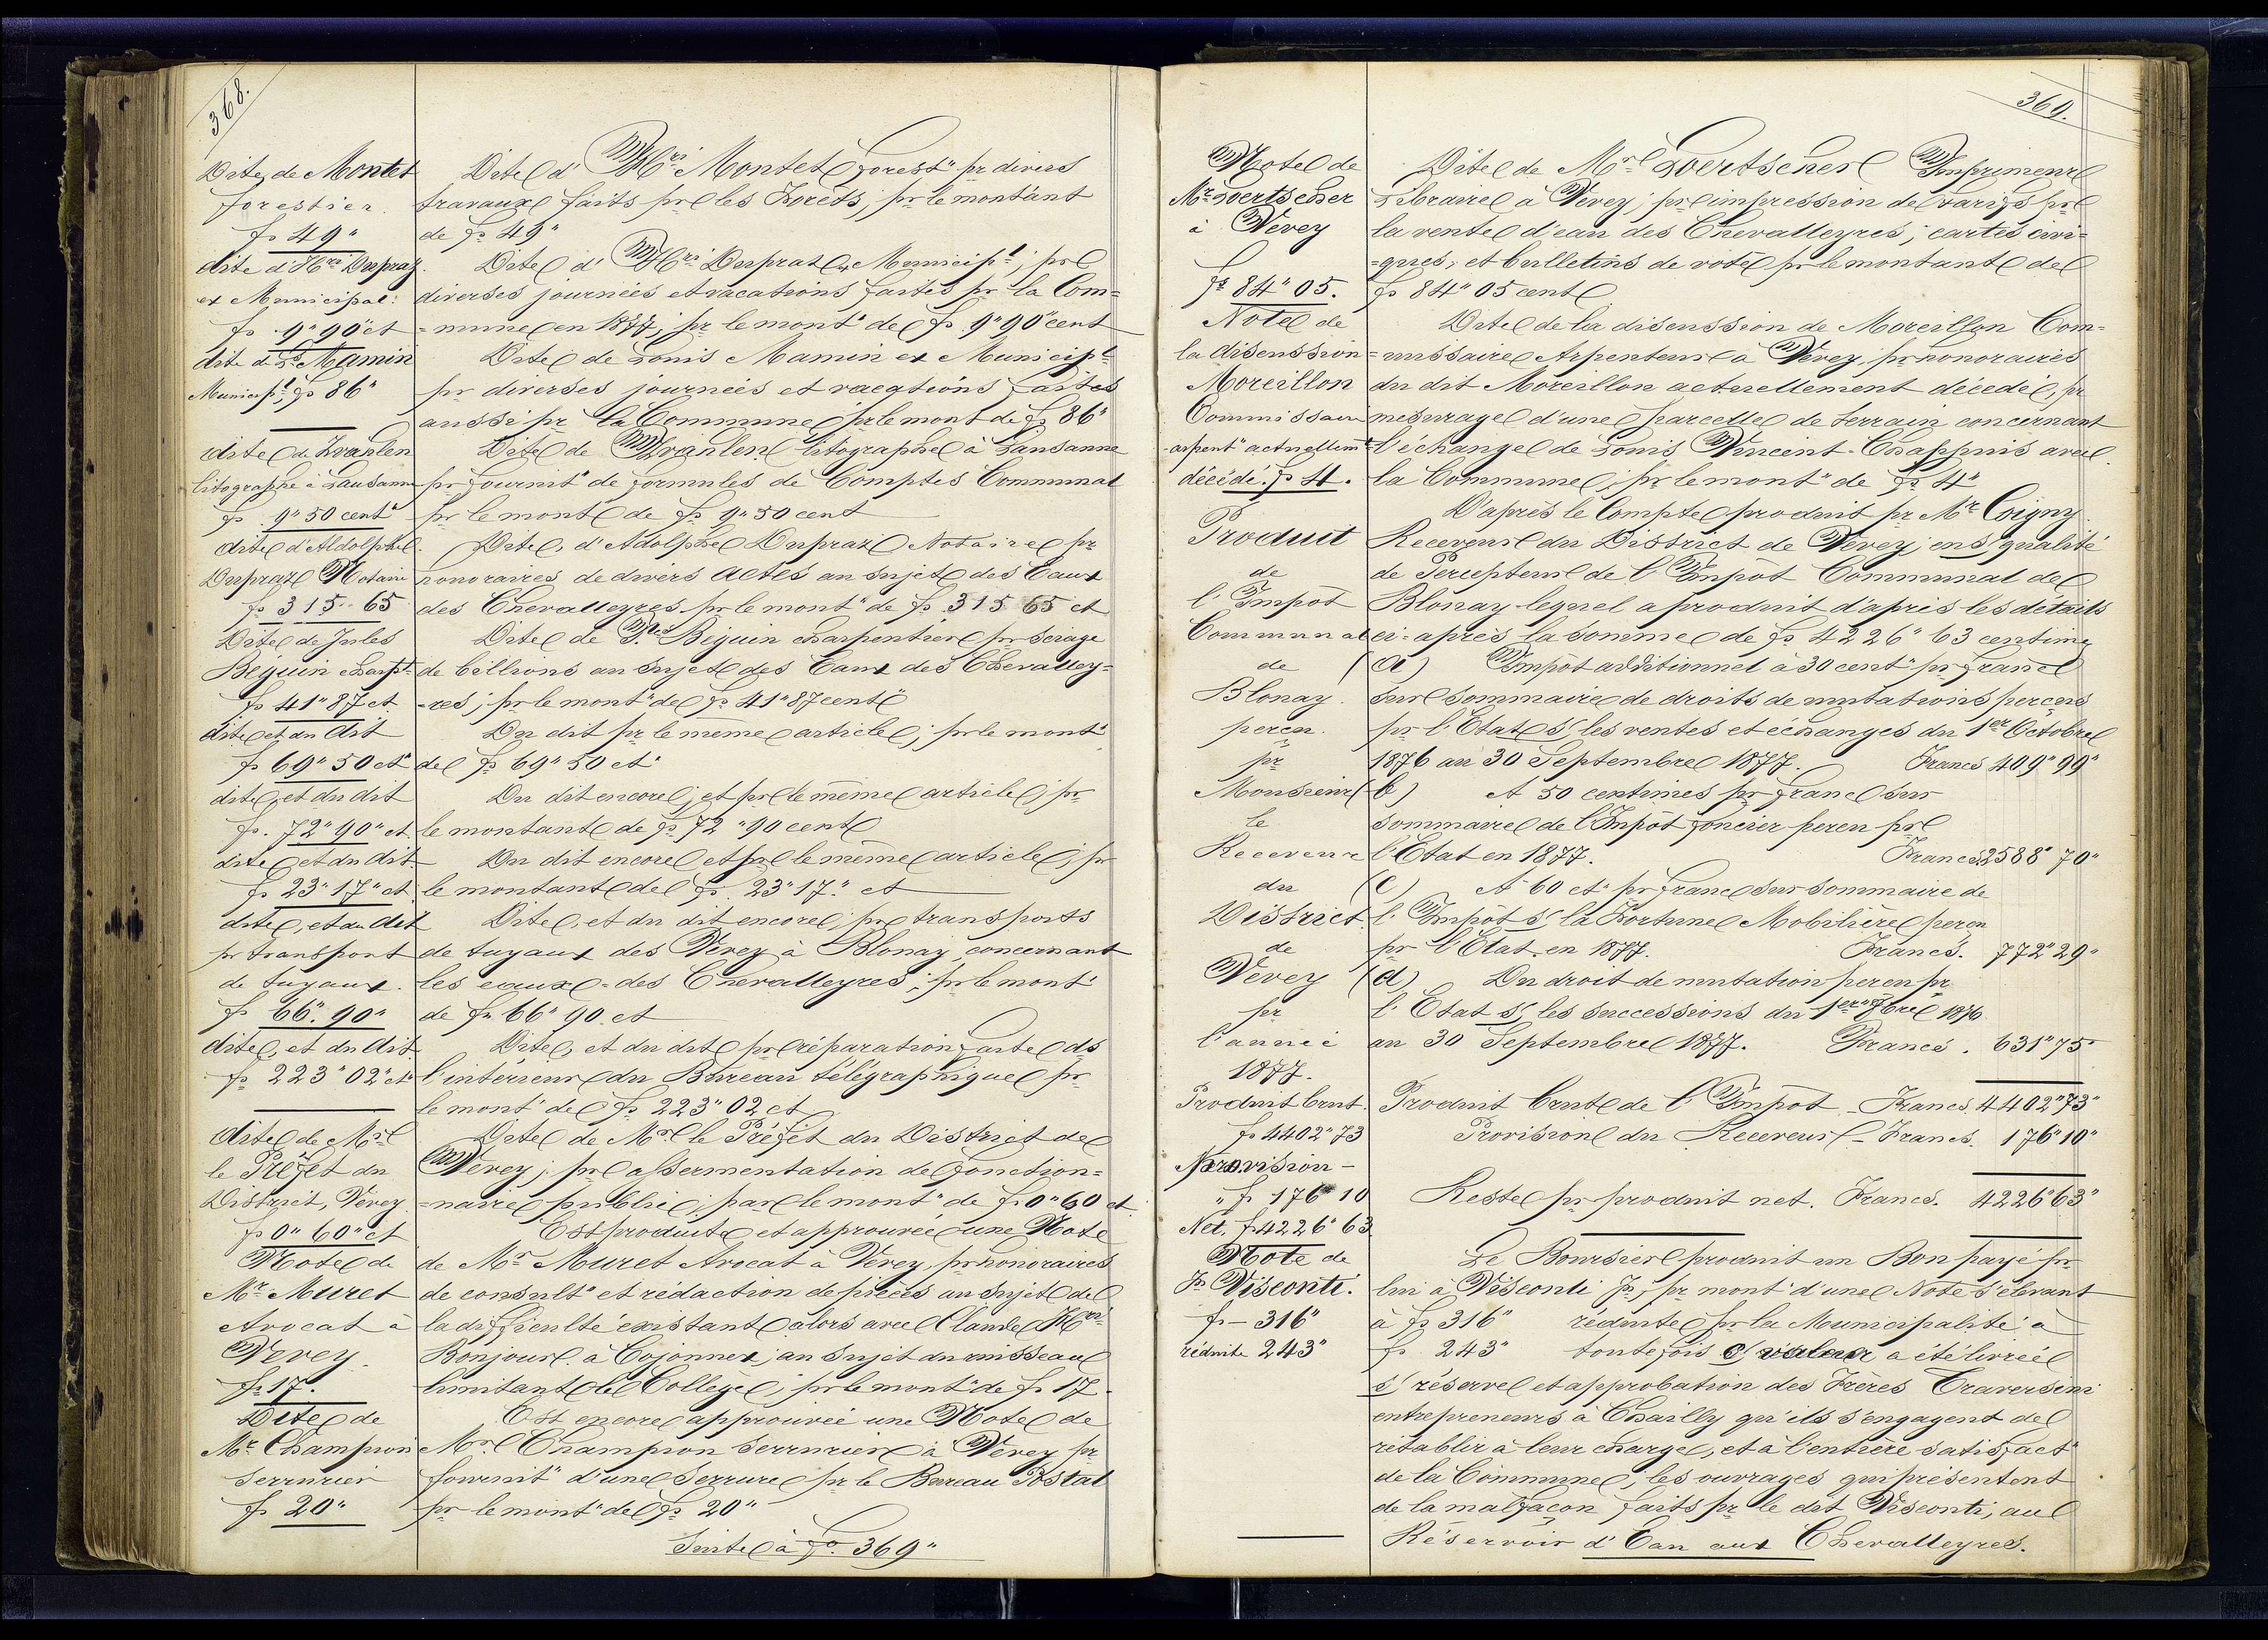 368.
Dite, de Montet
forestier.
fs 49"
dite d'Hri Dupraz.
ex Municipal:
fs 9" 90" ct
dite de Ls Mamin
Municipl, fs 86"
dite de Kranlen
litographe à Lausanne
fs 9" 50 cent"
dite d'Aldolphe
Dupraz Notaire
fs 315" 65
Dite de Jules
Beguin charpt
fs 41" 87 ct
dite et du dit
fs 69" 50 ct"
dite, et du dit
fs. 72" 90" ct
dite et du dit
fs 23" 17" ct
dite, et du dit
pr transport
de tuyaux.
fs 66". 90"
dite, et du dit.
fs 223" 02" ct
dite de Mr
le Préfet du
District, Vevey
fs 0" 60" ct
Note de
Mr Muret
Avocat à
Vevey.
fs 17.
Dite de
Mr Champion
Serrurier
fs 20"
Dite d' Hri Montet forest" pr divers
travaux faits pr les Forêts, pr le montant
de fs 49"
Dite d' Hri Dupraz ex Municipl; pr
diverses journées et vacations faites pr la Com=
=mune en 1877; pr le mont" de fs 9" 90" cent
Dite de Louis Mamin ex Municipl
pr diverses journées et vacations faites
aussi pr la Commune pr le mont de fs 86"
Dite de Kranlen litographe à Lausanne
pr fournit" de formules de Comptes Communal
pr le mont de fs 9" 50 cent
Dite, d'Adolphe Dupraz Notaire pr
honoraires de divers actes au sujet des Eaux
des Chevalleyres pr le mont" de fs 315 65 ct
Dite de Jles Béguin charpentier pr sciage
de billions au sujet des Eaux des Chevalley=
=res; pr le mont" de fs 41" 87 cent"
Du dit pr le même article; pr le mont"
de fs 69" 50 ct"
Du dit encore; et pr le même article; pr
le montant de fs 72" 90 cent
Du dit encore et pr le même article; pr
le montant de fs 23" 17" ct
Dite, et du dit encore; pr transports
de tuyaux des Vevey à Blonay, concernant
les eaux = des Chevalleyres; pr le mont"
de fs 66" 90 ct
Dite, et du dit pr réparation faite ds
l'intérieur du Bureau télégraphique pr
le mont" de fs 223" 02 ct
Dite de Mr le Préfet du District de
Vevey; pr assermentation de fonction=
=naire public; par le mont" de fs 0" 60 ct.
Est produite et approuvée une Note
de Mr Muret Avocat à Vevey, pr honoraires
de consult" et rédaction de pièces au sujet de
la difficulté existant alors avec Claude Hri
Bonjour à Cojonnex; au sujet du ruisseau
limitant le Collège; pr le mont" de fs 17.
Est encore approuvée une Note de
Mr Champion Serrurier à Vevey pr
fournit" d'une Serrure pr le Bureau Postal
pr le mont" de fs 20"
Suite à fo. 369"
369.
Note de
Mr Loertscher
à Vevey
fs 84" 05.
Note de
la discussion
Moreillon
Commissair
arpent" actuellemt
décédé. fs 4.
Produit
de
l'Impôt
Communal
de
Blonay.
perçu.
pr
Monsieur
le
Receveur
du
District
de
Vevey
pr
l'année
1877.
Produit brut.
fs 4402" 73
Provision –
" fs 176" 10
Net. fs 4226" 63
Note de
Jn Visconti.
fs – 316"
réduite 243"
Dite de Mr Loertscher Imprimeur
Librairie à Vevey; pr impression de tarifs pr
la vente d'eau des Chevalleyres; cartes civi=
=ques; et bulletins de vote pr le montant de
fs 84" 05 cent
Dite de la discussion de Moreillon Com=
=missaire Arpenteur à Vevey, pr honoraires
du dit Moreillon actuellement décédé, pr
mesurage d'une parcelle de terrain concernant
l'échange de Louis Vincent-Chappuis avec
la Commune; pr le mont" de fs 4"
D'après le Compte produit pr Mr Cigny
Receveur du District de Vevey en s/ qualité
de Percepteur de l'Impôt Communal de
Blonay lequel a produit d'après les détails
ci-après la somme de fs 4226" 63 centime
(a) Impôt additionnel à 30 cent" pr franc
sur sommaire de droits de mutations perçus
pr l'Etat s/ les ventes et échanges du 1er Octobre
1876 au 30 Septembre 1877. Francs 409" 99"
(b) A 50 centimes pr franc sur
sommaire de l'Impôt foncier perçu pr
l'Etat en 1877. Francs 2588" 70"
(c) A 60 ct" pr franc sur sommaire de
l'Impôt s/ la Fortune Mobilière perçu
pr l'Etat en 1877. Francs. 772" 29"
(d) Du droit de mutation perçu pr
l'Etat s/ les successions du 1er 8bre 1876
au 30 Septembre 1877. Francs. 631" 75"
Produit brut de l'Impôt – Francs 4402" 73"
Provision du Receveur – Francs. 176" 10"
Reste pr produit net. Francs. 4226" 63"
Le Boursier produit un Bon payé pr
lui à Visconti Jn, pr mont" d'une Note s'élevant
à fs 316" réduite pr la Municipalité à
fs 243" toutefois c/ valeur a été livrée
s/ réserve et approbation des Frères Traversini
entrepreneurs à Chailly qu'ils s'engagent de
rétablir à leur charge, et à l'entière satisfact"
de la Commune; les ouvrages qui présentent
de la malfaçon faits pr le dit Visconti, au
Réservoir d'Eau aux Chevalleyres.